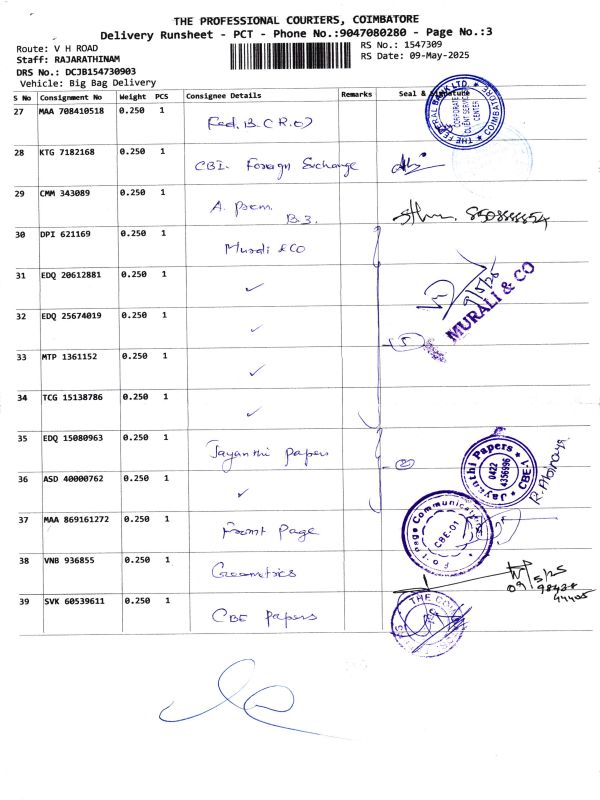 THE PROFESSIONAL COURIERS, COIMBATORE
Delivery Runsheet - PCT - Phone No.:9047080280 - Page No.:3
Route: V H ROAD
RS No.: 1547309
Staff: RAJARATHINAM
RS Date: 09-May-2025
DRS No.: DCJB154730903
Vehicle: Big Bag Delivery
S No Consignment No Weight PCS Consignee Details Remarks Seal & Signature
27 MAA 708410518 0.250 1 Fed. B. (R.O)
THE FEDERAL BANK LTD. COIMBATORE
CORPORATE
CLIENT SERVICE
CENTER
28 KTG 7182168 0.250 1 CBI- Foreign Exchange
29 CMM 343089 0.250 1 A. Prem. B.3.
30 DPI 621169 0.250 1 Murali &CO
31 EDQ 20612881 0.250 1 ✓
9/5/25
MURALI & CO
32 EDQ 25674019 0.250 1 ✓
33 MTP 1361152 0.250 1 ✓
5
34 TCG 15138786 0.250 1 ✓
35 EDQ 15080963 0.250 1 Jayanthi papers
2
Jayanthi Papers CBE-1
0422
4356996
36 ASD 40000762 0.250 1 ✓
37 MAA 869161272 0.250 1 Front Page
CBE-01
38 VNB 936855 0.250 1 Geometrics
09/5/25
39 SVK 60539611 0.250 1 CBE Papers